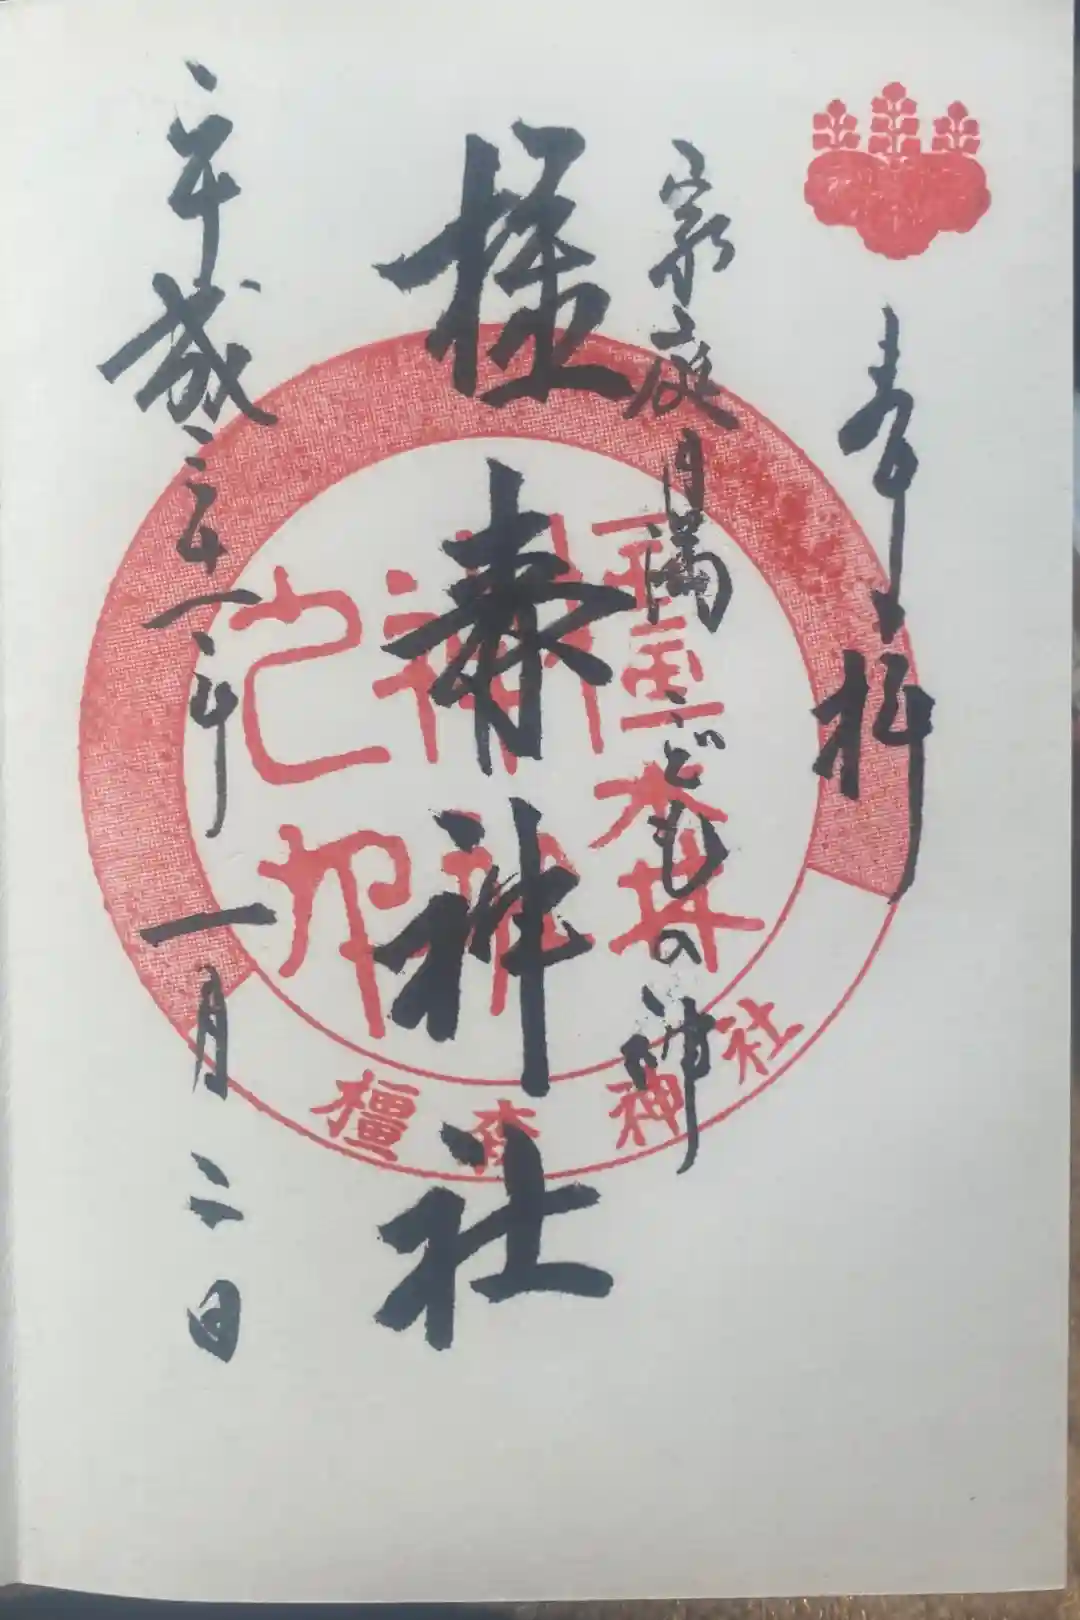 奉拝
家庭円満こどもの神
橿森神社
平成三十一年一月二日
橿森
神社
之印
橿森神社